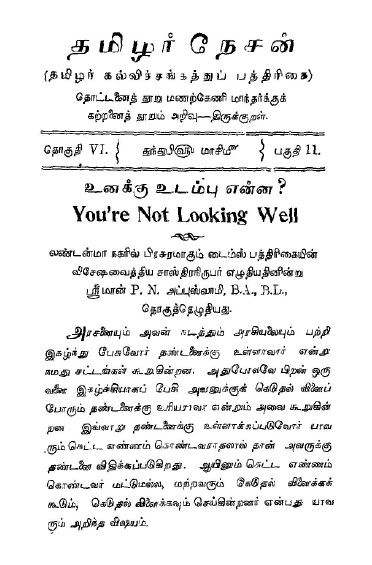 தமிழர் நேசன்
(தமிழர் கல்விச்சங்கத்துப் பத்திரிகை)
தொட்டனைத் தூறு மணற்கேணி மாந்தர்க்குக்
கற்றனைத் தூறும் அறிவு—திருக்குறள்.
தொகுதி VI. பகுதி 11.
உனக்கு உடம்பு என்ன?
You're Not Looking Well
லண்டன்மா நகரில் பிரசுரமாகும் டைம்ஸ் பத்திரிகையின்
விசேஷவைத்திய சாஸ்திரநிருபர் எழுதியதினின்று
ஸ்ரீமான் P. N. அப்புஸ்வாமி, B.A., B.L.,
தொகுத்தெழுதியது.
அரசனையும் அவன் நடத்தும் அரசியலையும் பற்றி
இகழ்ந்து பேசுவோர் தண்டனைக்கு உள்ளாவார் என்று
நமது சட்டங்கள் கூறுகின்றன. அதுபோலவே பிறன் ஒரு
வனை இகழ்ச்சியாகப் பேசி அவனுக்குக் கெடுதல் விளைப்
போரும் தண்டனைக்கு உரியராவர் என்றும் அவை கூறுகின்
றன இவ்வாறு தண்டனைக்கு உள்ளாக்கப்படுவோர் யாவ
ரும் கெட்ட எண்ணம் கொண்டவராதலால் தான் அவருக்கு
தண்டனை விதிக்கப்படுகிறது. ஆயினும் கெட்ட எண்ணம்
கொண்டவர் மட்டுமல்ல, மற்றவரும் கேடுதல் விளைக்கக்
கூடும், கெடுதல் விளைக்கவும் செய்கின்றனர் என்பது யாவ
ரும் அறிந்த விஷயம்.